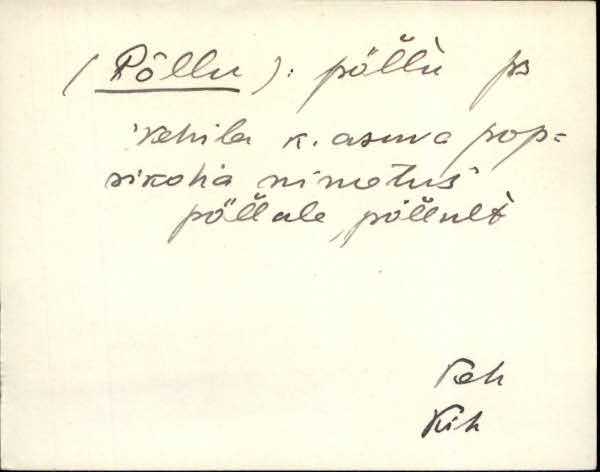 (Põllu): põl̆l̆ù ps
'Kehila k. asuva pop-
sikoha nimetus'
põl̆l̆ale, põl̆l̆ult
Keh
Kih